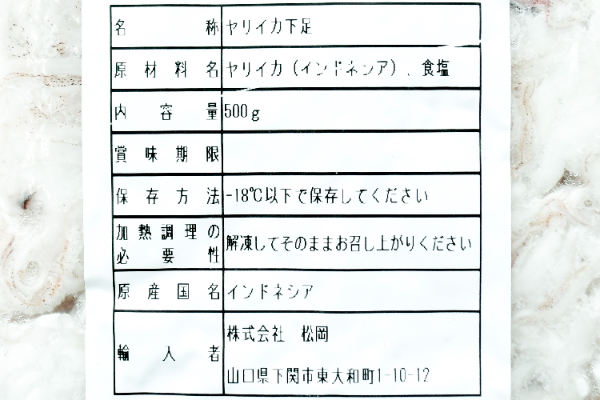 名称 ヤリイカ下足
原材料名 ヤリイカ（インドネシア）、食塩
内容量 500g
賞味期限
保存方法 -18℃以下で保存してください
加熱調理の
必要性 解凍してそのままお召し上がりください
原産国名 インドネシア
輸入者 株式会社 松岡
山口県下関市東大和町1-10-12